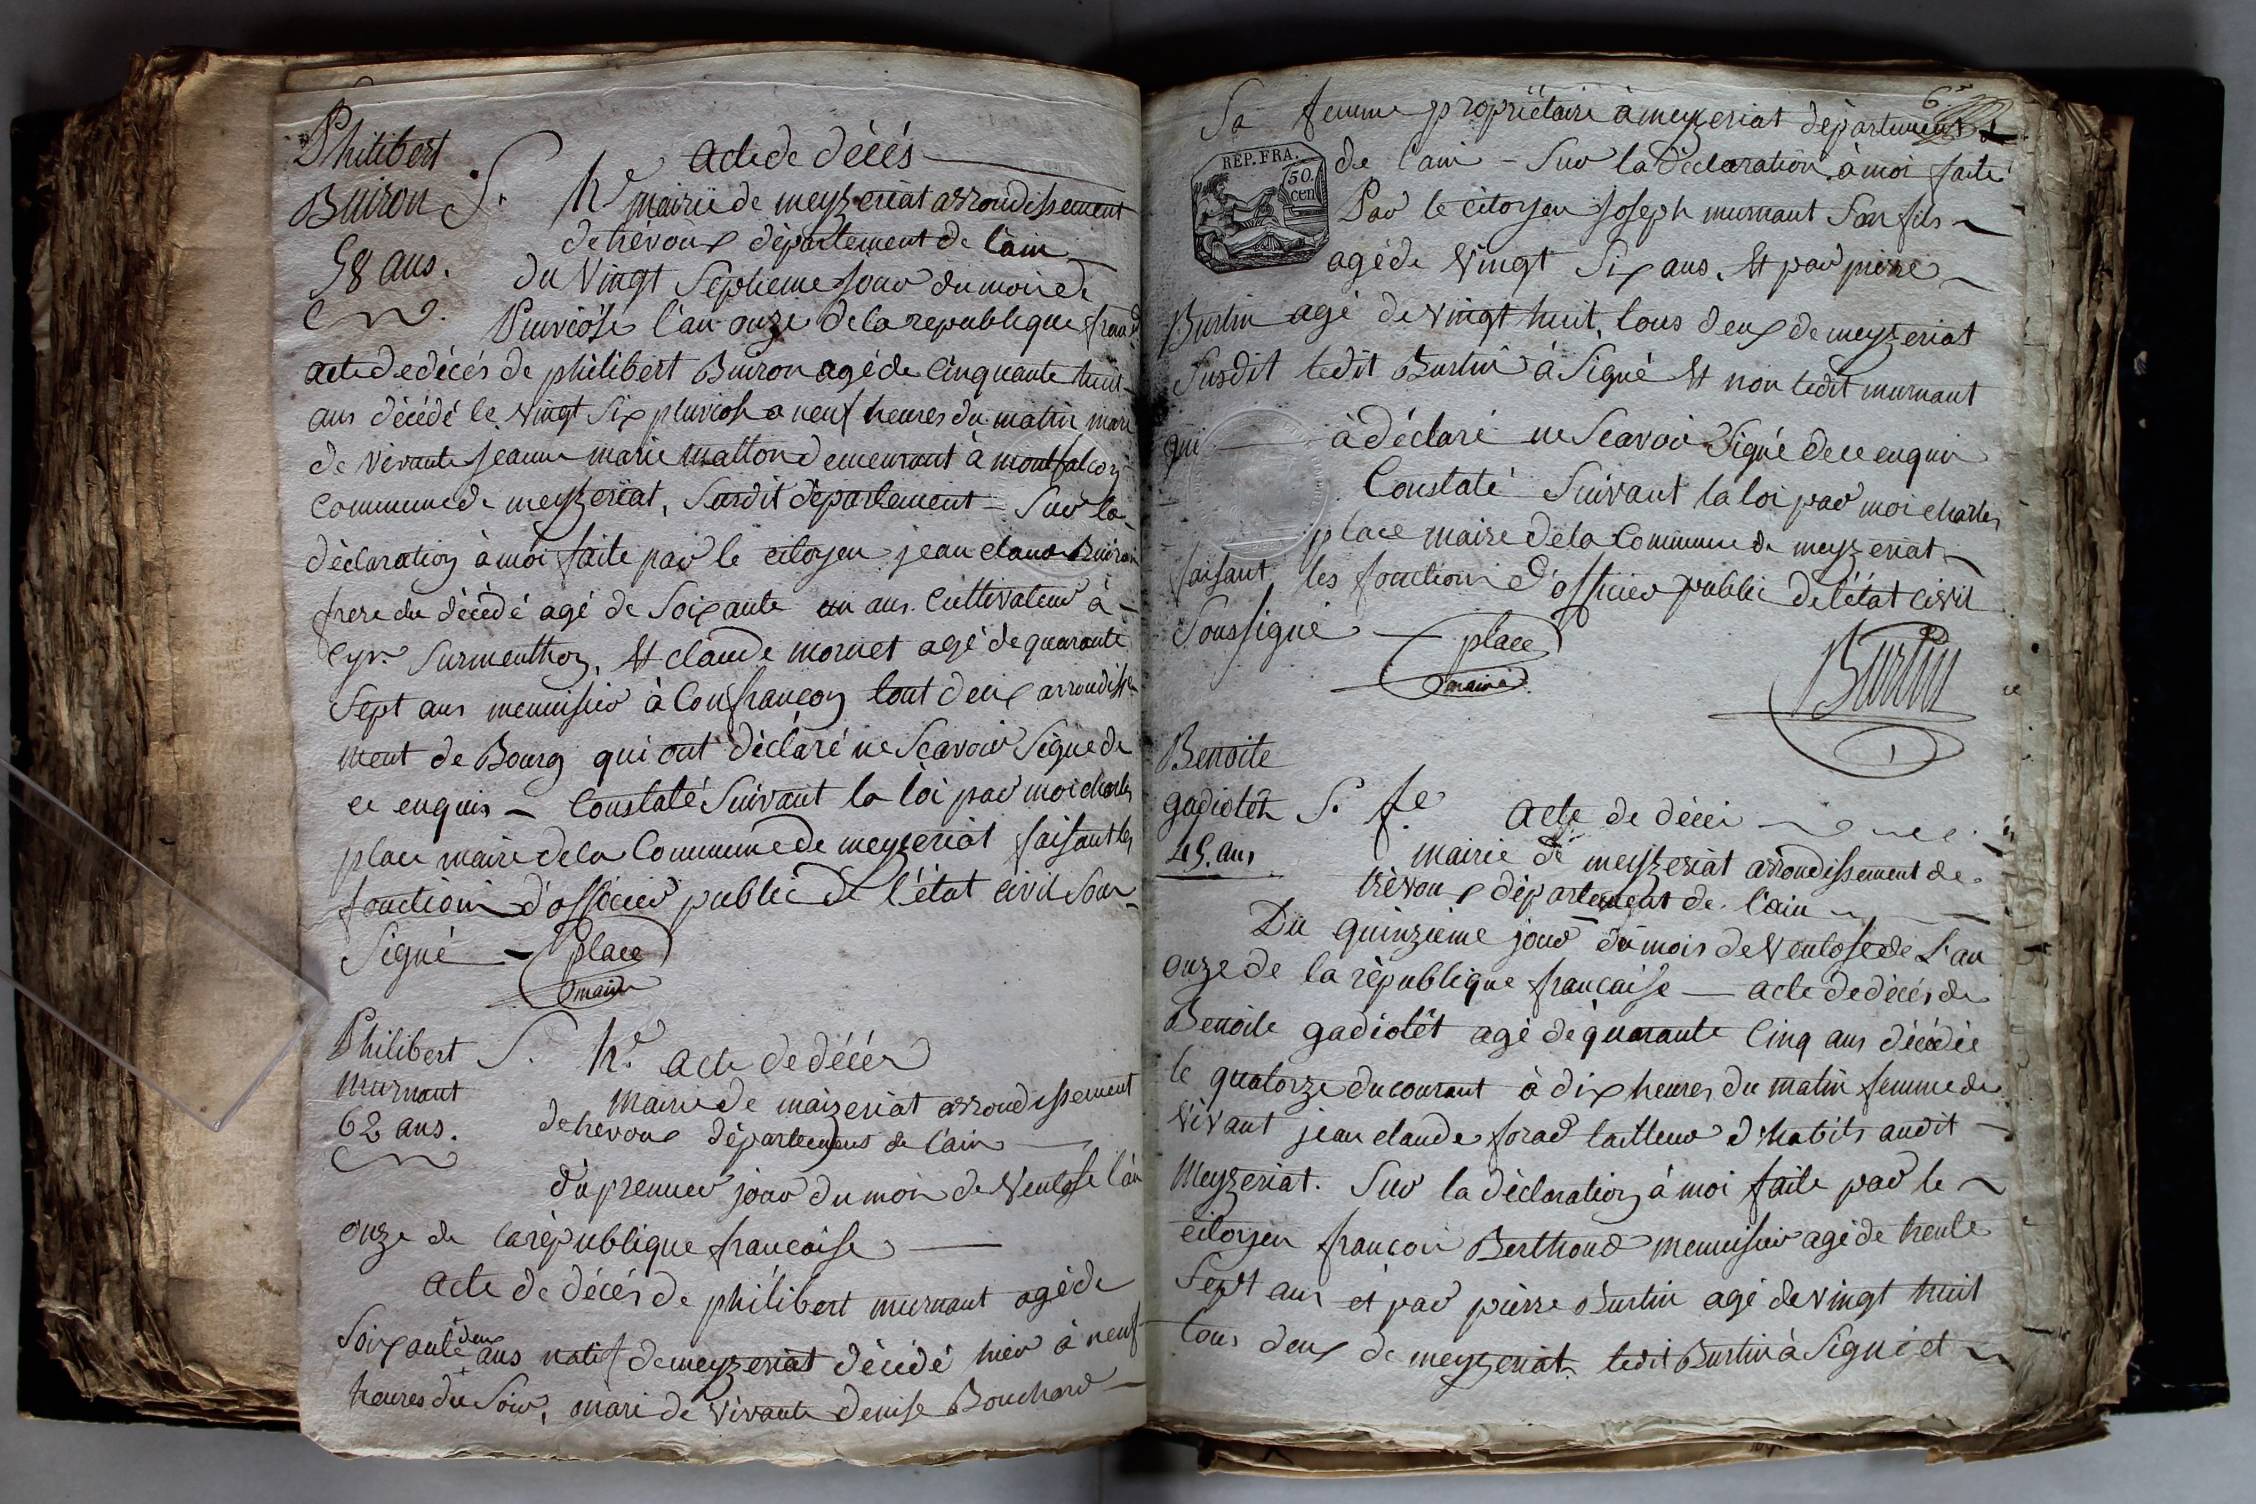 Philibert
Buiron
58 ans.
S. h.e acte de décés
mairie de meyzeriat arrondissement
de trévoux département de l'ain
du Vingt Septieme Jour du mois de
Pluviose l'an onze de la republique franç
acte de décés de philibert Buiron agé de Cinquante huit
ans décédé le Vingt Six pluviose a neuf heures du matin mari
de vivante Jeanne marie matton demeurant à montfalcon
Commune de meyzeriat, Susdit département - Sur la
déclaration à moi faite par le citoyen jean claude Buiron
frere du décédé agé de Soixante un ans Cultivateur à
Surmenthon, Et claude mornet agé de quarante
Sept ans menuisier à Confrançon tout deux arrondisse
ment de Bourg qui ont déclaré ne Scavoir Signe de
ce enquis - Constaté Suivant la loi par moi charles
place maire de la Commune de meyzeriat faisant les
fonctions d'officier public de l'état civil Sous
Signé - place
maire
Philibert
murnant
62 ans.
S. h.e acte de décés
mairie de maizeriat arrondissement
de trevoux département de l'ain
du premier jour du mois de Ventose l'an
onze de la république francaise
acte de décés de philibert murnant agé de
Soixante deux ans natif de meyzeriat décédé hier à neuf
heures du Soir, mari de vivante denise Bouchard
6
Sa femme propriétaire à meyzeriat département
de l'ain - Sur la déclaration à moi faite
REP. FRA.
50
cen
Par le citoyen Joseph murnant Son fils
agé de Vingt Six ans Et par pierre
Burtin agé de Vingt huit, tous deux de meyzeriat
Susdit ledit Burtin à Signé Et non ledit murnant
qui à déclaré ne Scavoir Signé de ce enquis
Constaté Suivant la loi par moi charles
place maire de la Commune de meyzeriat
faisant les fonctions d'officier public de l'état civil
Soussigné - place
maire
Burtin
Benoite
gadiolét
45. ans
S. f.e acte de décés
mairie de meyzeriat arrondissement de
trévoux département de l'ain
Du quinzieme jour du mois de Ventose de L'an
onze de la république francaise - acte de décés de
Benoite gadiolét agé de quarante Cinq ans décédée
le quatorze du courant à dix heures du matin femme de
vivant jean claude forad tailleur d'habits audit
Meyzeriat. Sur la déclaration à moi faite par le
citoyen francois Berthoud menuisier agé de trente
Sept ans et par pierre Burtin agé de vingt huit
tous deux de meyzeriat ledit Burtin à Signé et